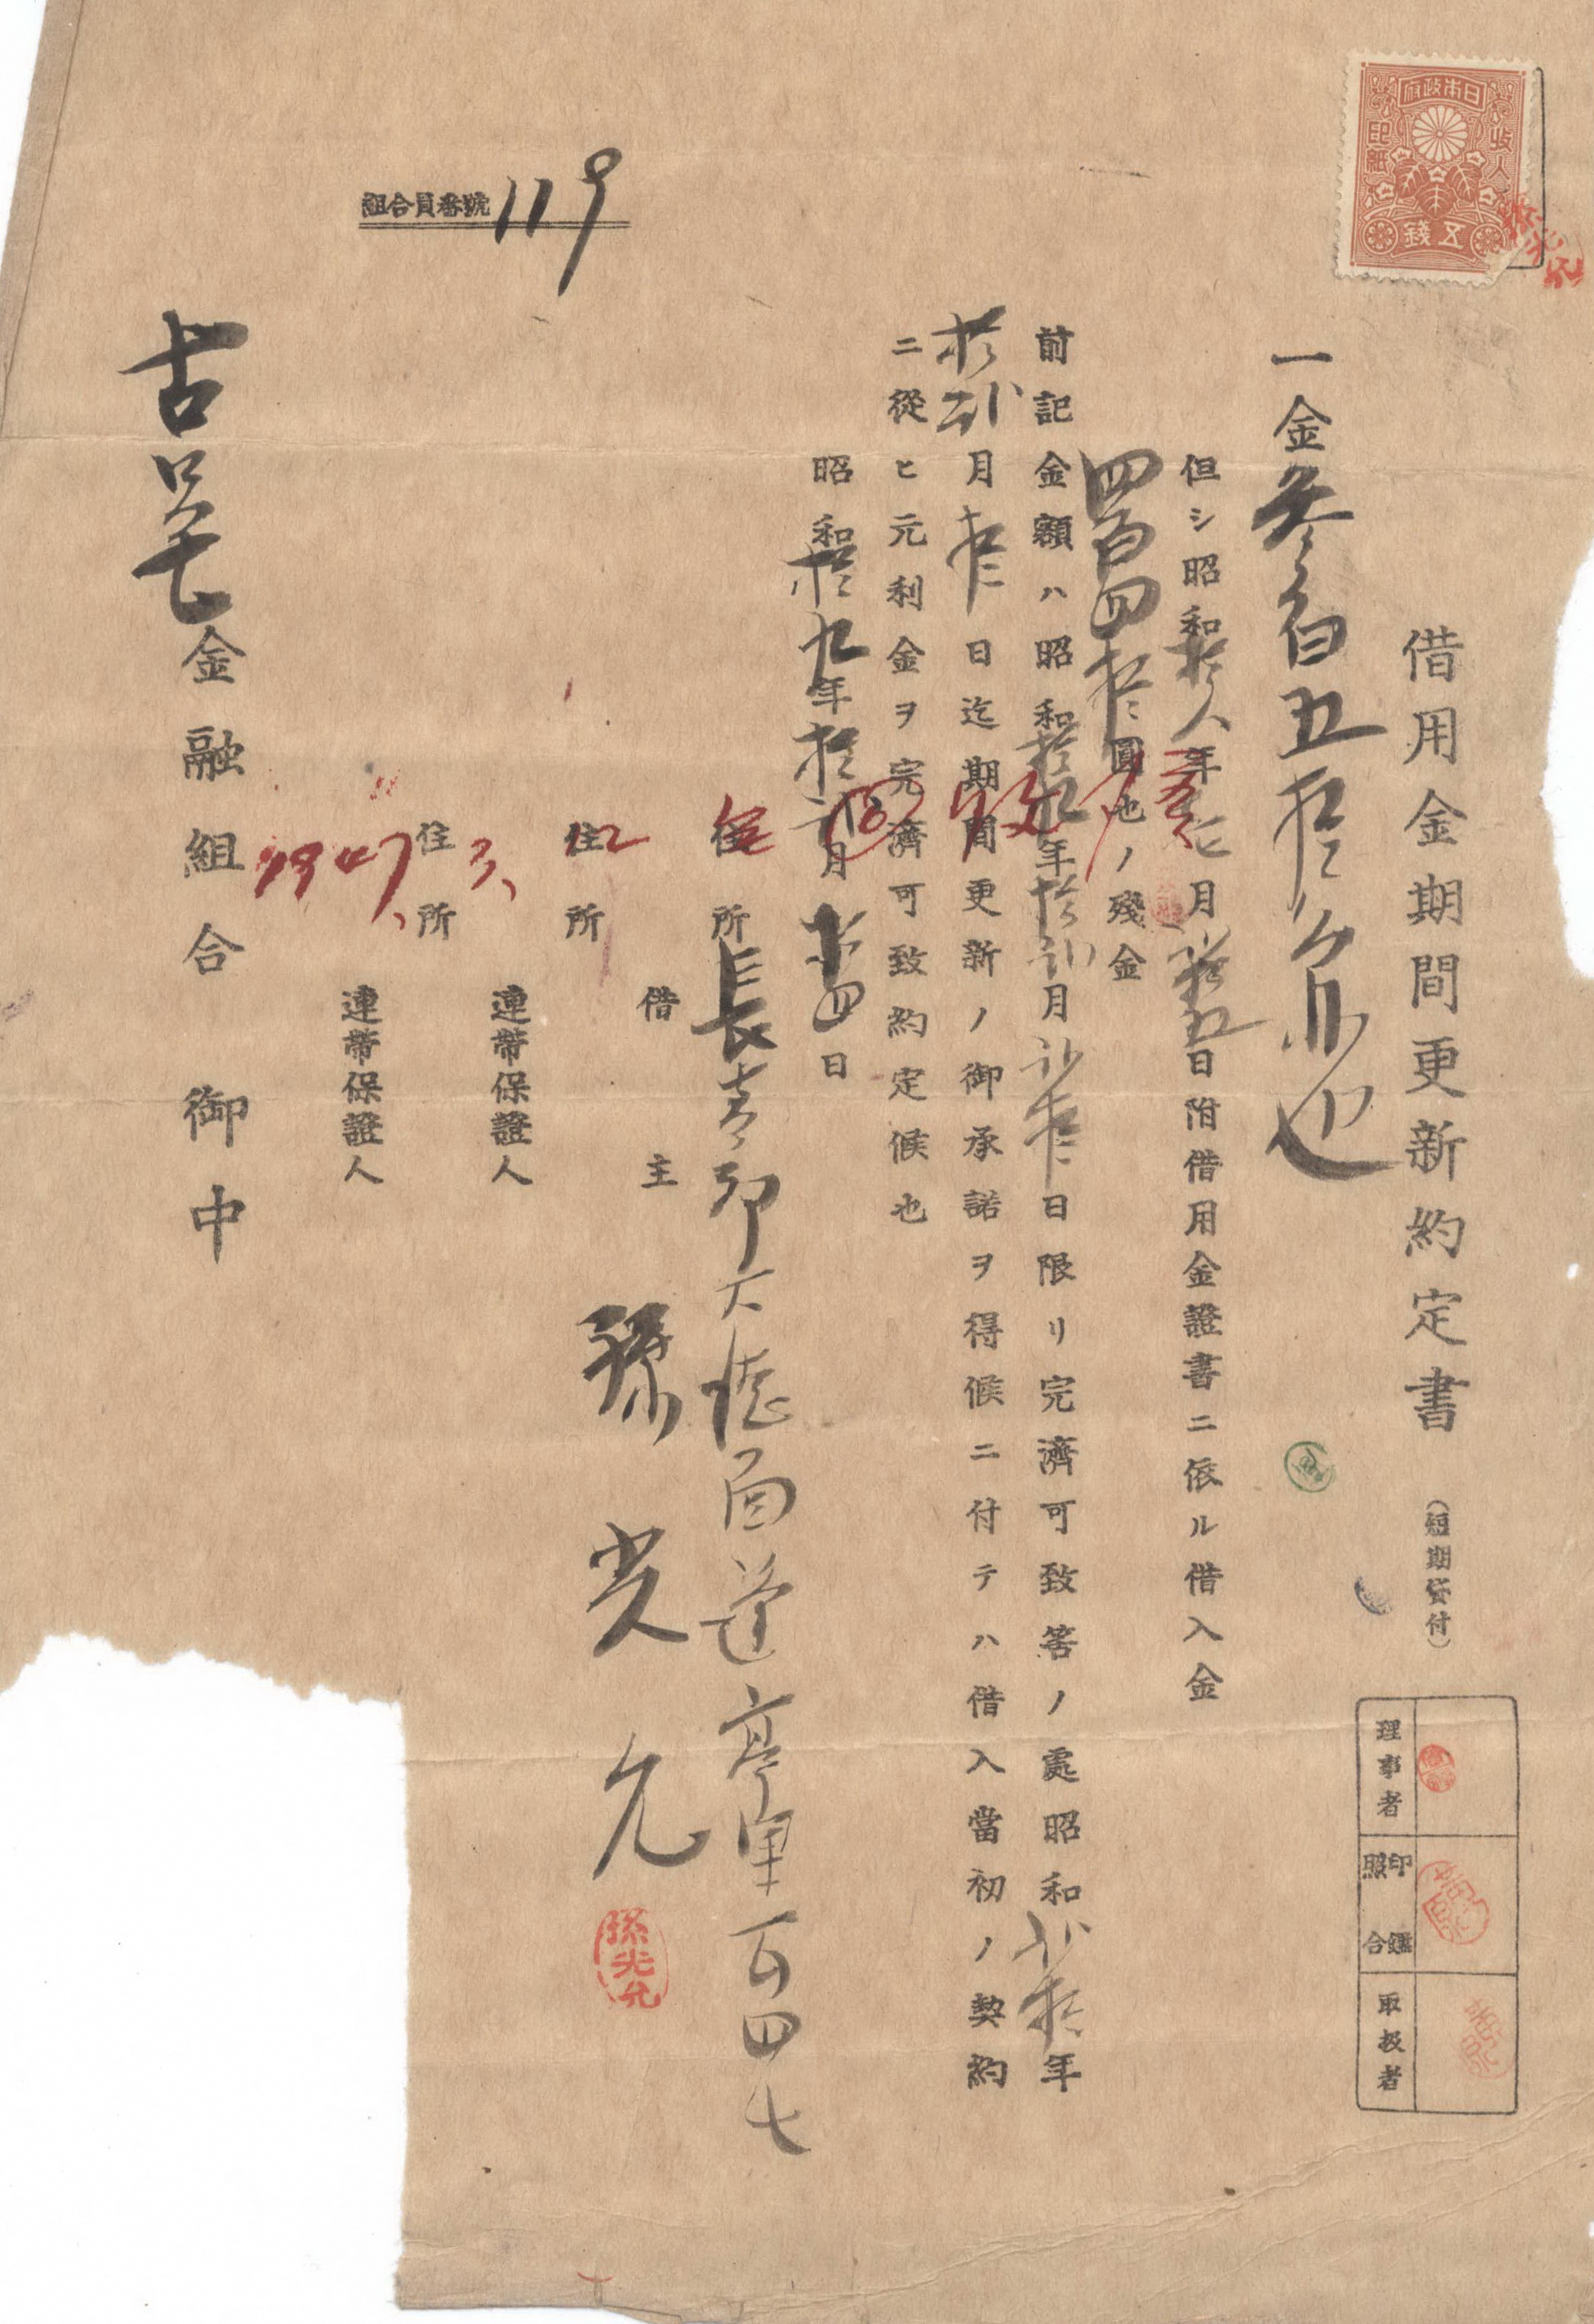 日本政府
収入
印紙
五錢
組合員番號 119
借用金期間更新約定書 (短期貸付)
一金参百五拾
也
但シ昭和拾八年七月拾五日附借用金證書ニ依ル借入金
四百四拾圓也ノ殘金
前記金額ハ昭和拾九年拾弐月弐拾日限リ完濟可致筈ノ處昭和弐拾年
拾弐月弐拾日迄期間更新ノ御承諾ヲ得候ニ付テハ借入當初ノ契約
ニ從ヒ元利金ヲ完濟可致約定候也
昭和拾九年拾弐月拾四日
住所 長斎郡大德面蓮亭里百四七
借主 孫光允
孫光允
住所
連帶保證人
住所
連帶保證人
回收
1947. 3. 12
金融組合御中
理事者
印鑑照合
取扱者